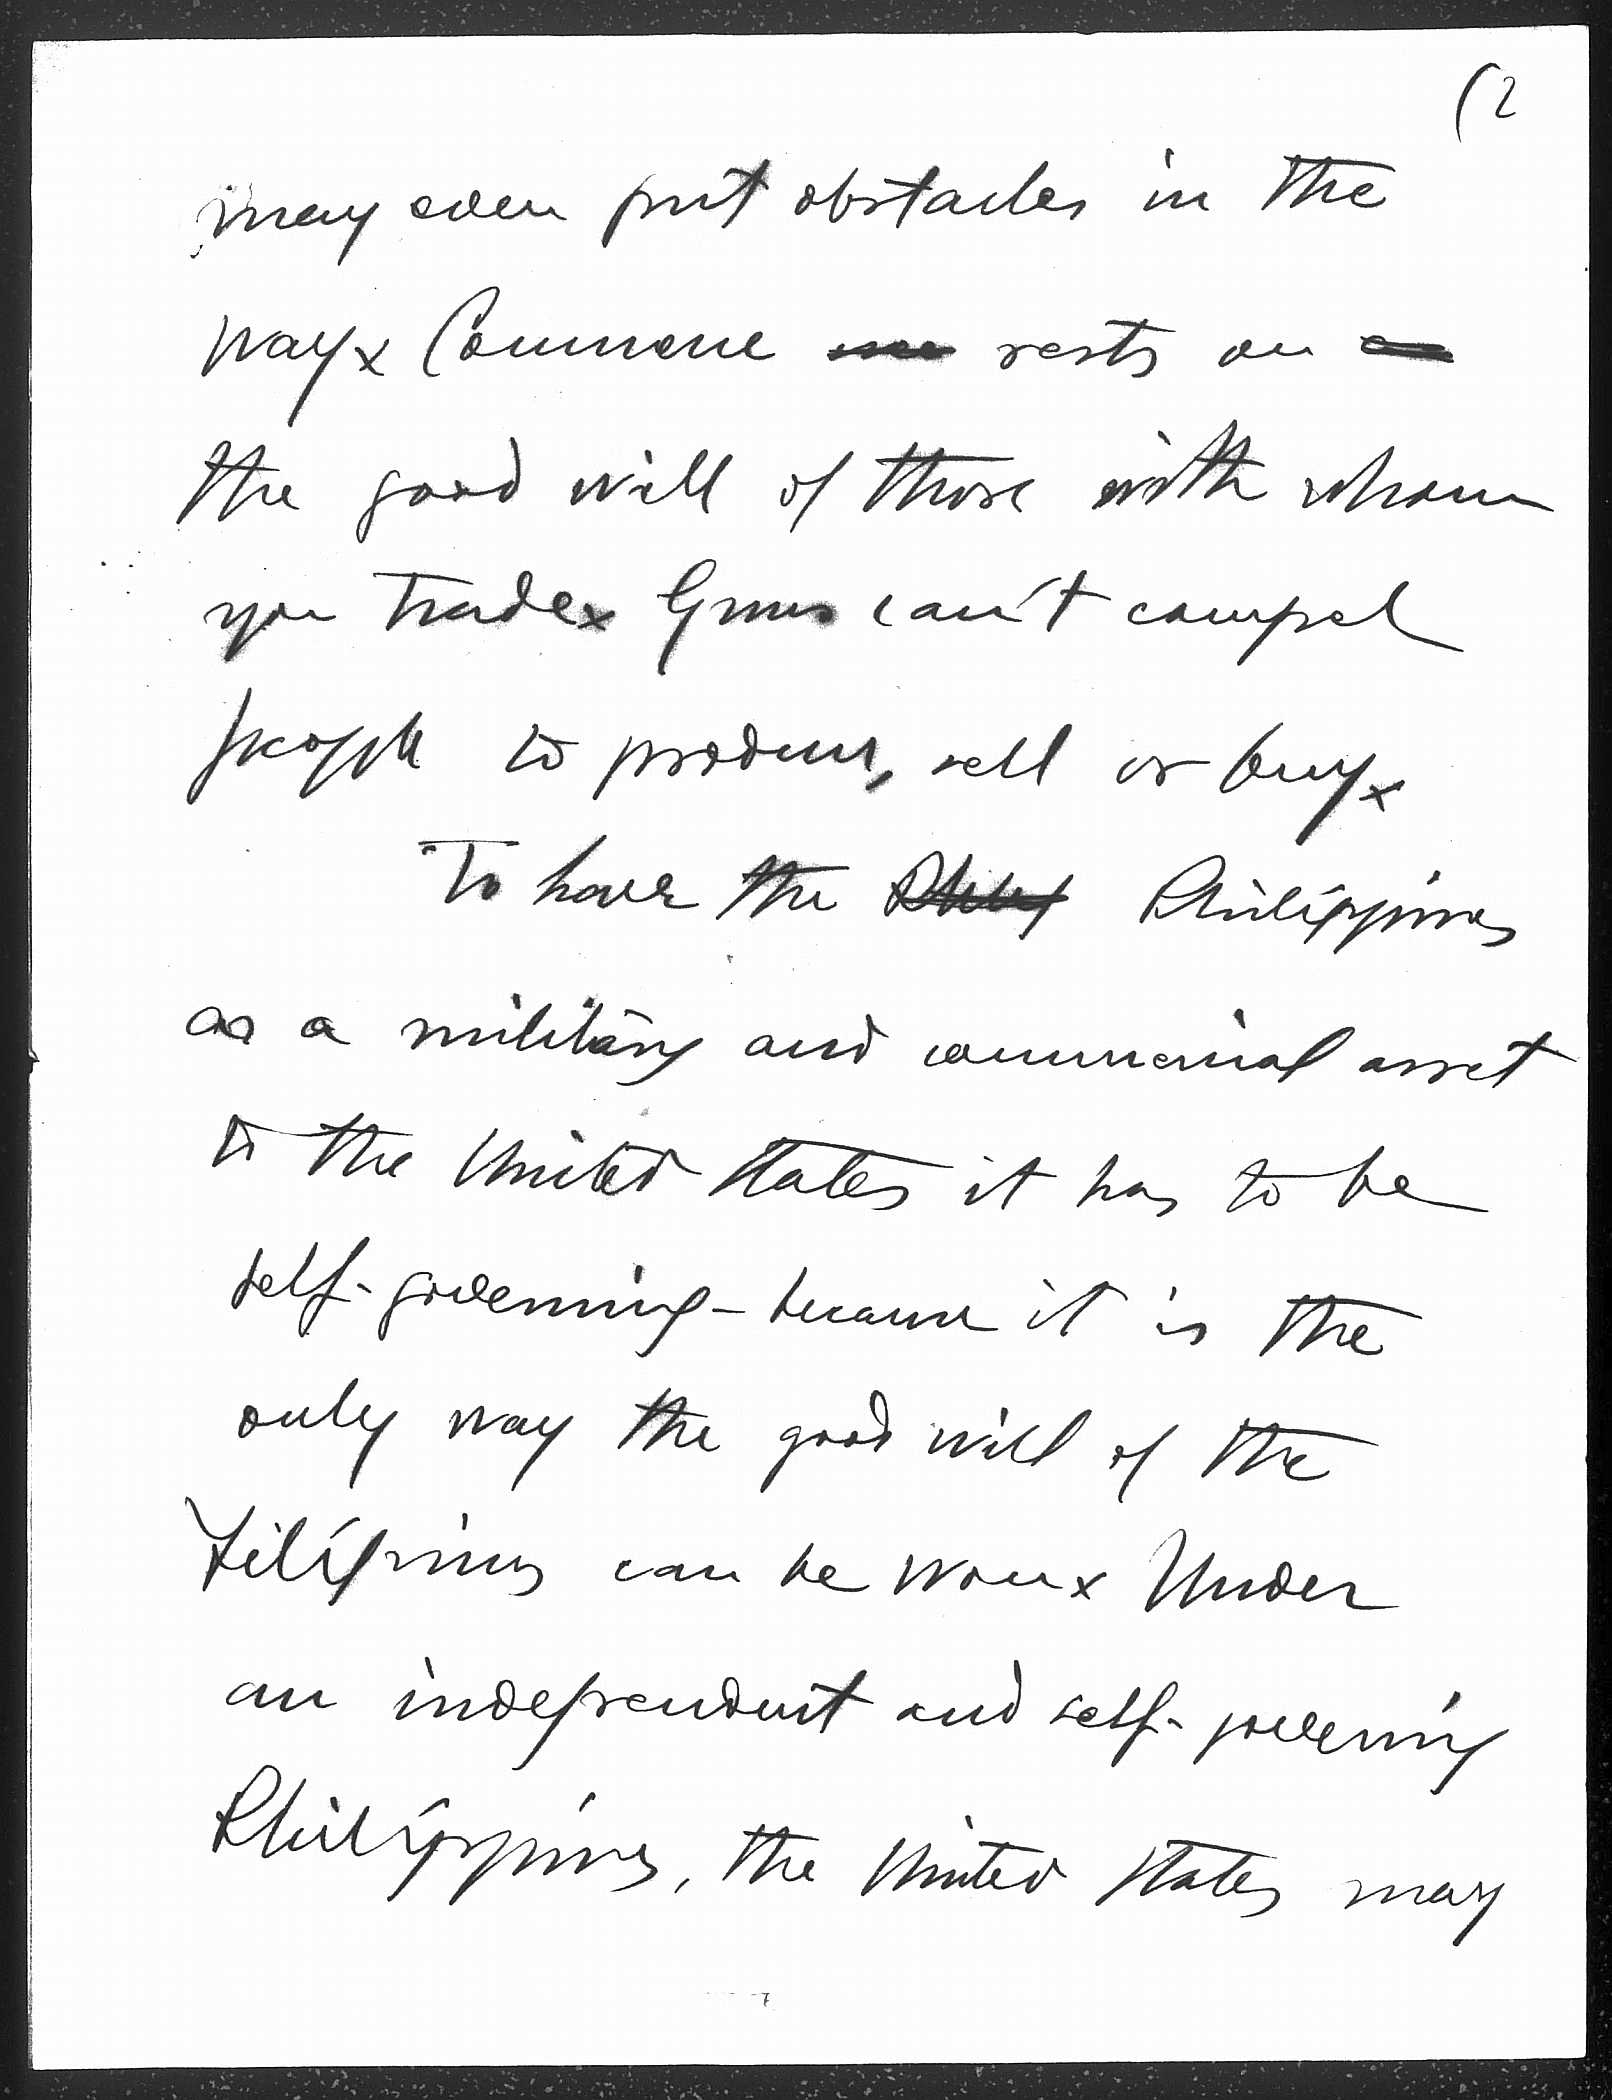 (2
may even put obstacles in the
wayx Commerce rests on
the good will of those with whom
you tradex Guns can't compel
people to produce, sell or buyx
To have the Philippines
as a military and commercial asset
to the United States it has to be
self-governing - because it is the
only way the good will of the
Filipinos can be wonx Under
an independent and self-governing
Philippines, the United States may